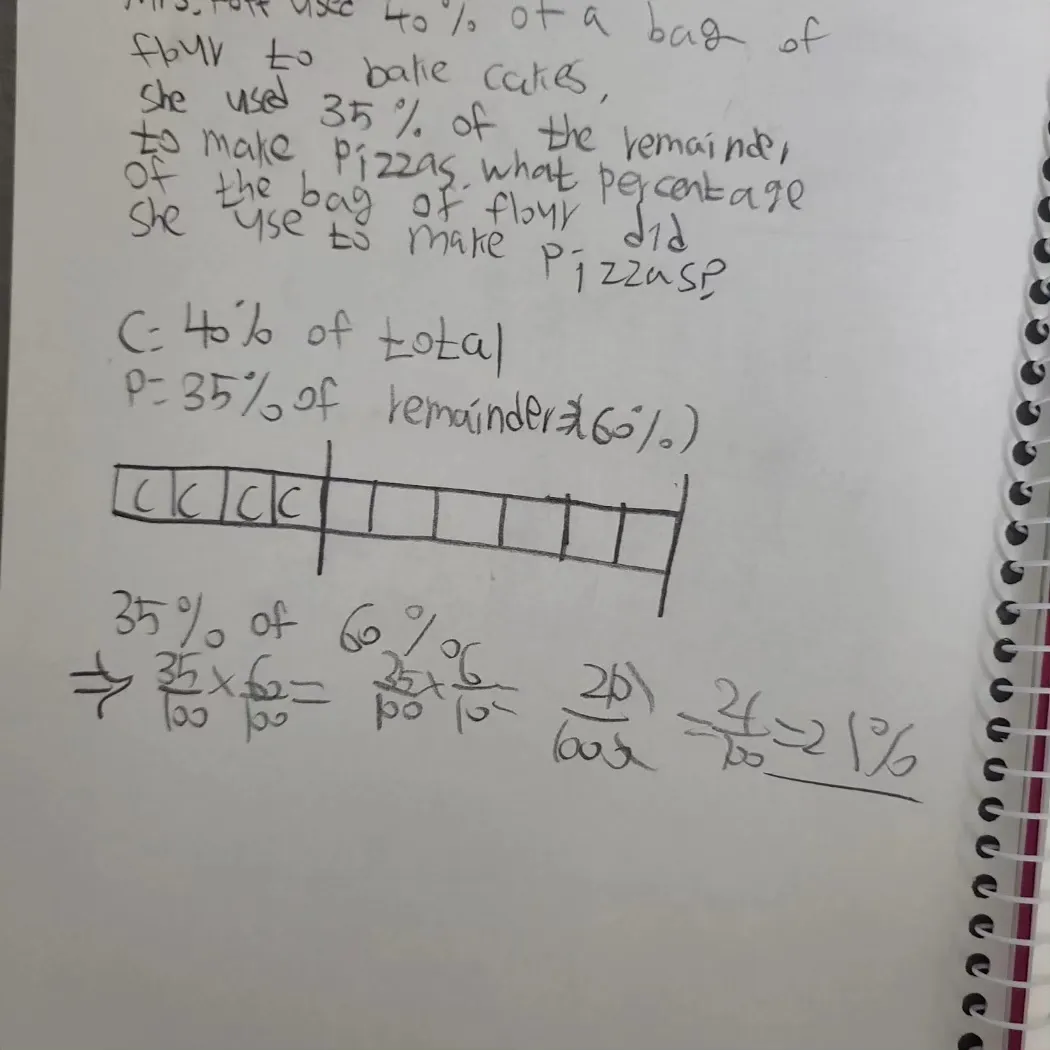 use 40% of a bag of
flour to bake cakes,
she used 35% of the remainder
to make pizzas. what percentage
of the bag of flour did
she use to make pizzas?
C= 40% of total
P= 35% of remainder (60%)
C C C C
35% of 60%
⇒ 35/100 × 60/100 = 35/100 × 6/10 = 210/1000 = 21/100 = 21%